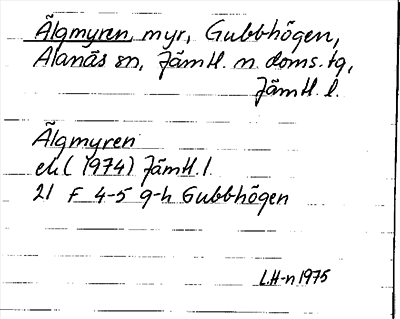 Älgmyren, myr, Gubbhögen,
Alanäs sn, Jämtl. n doms. tg,
Jämtl. l.
Älgmyren
ek (1974) Jämtl. l
21 F 4-5 g-h Gubbhögen
L.H-n 1975